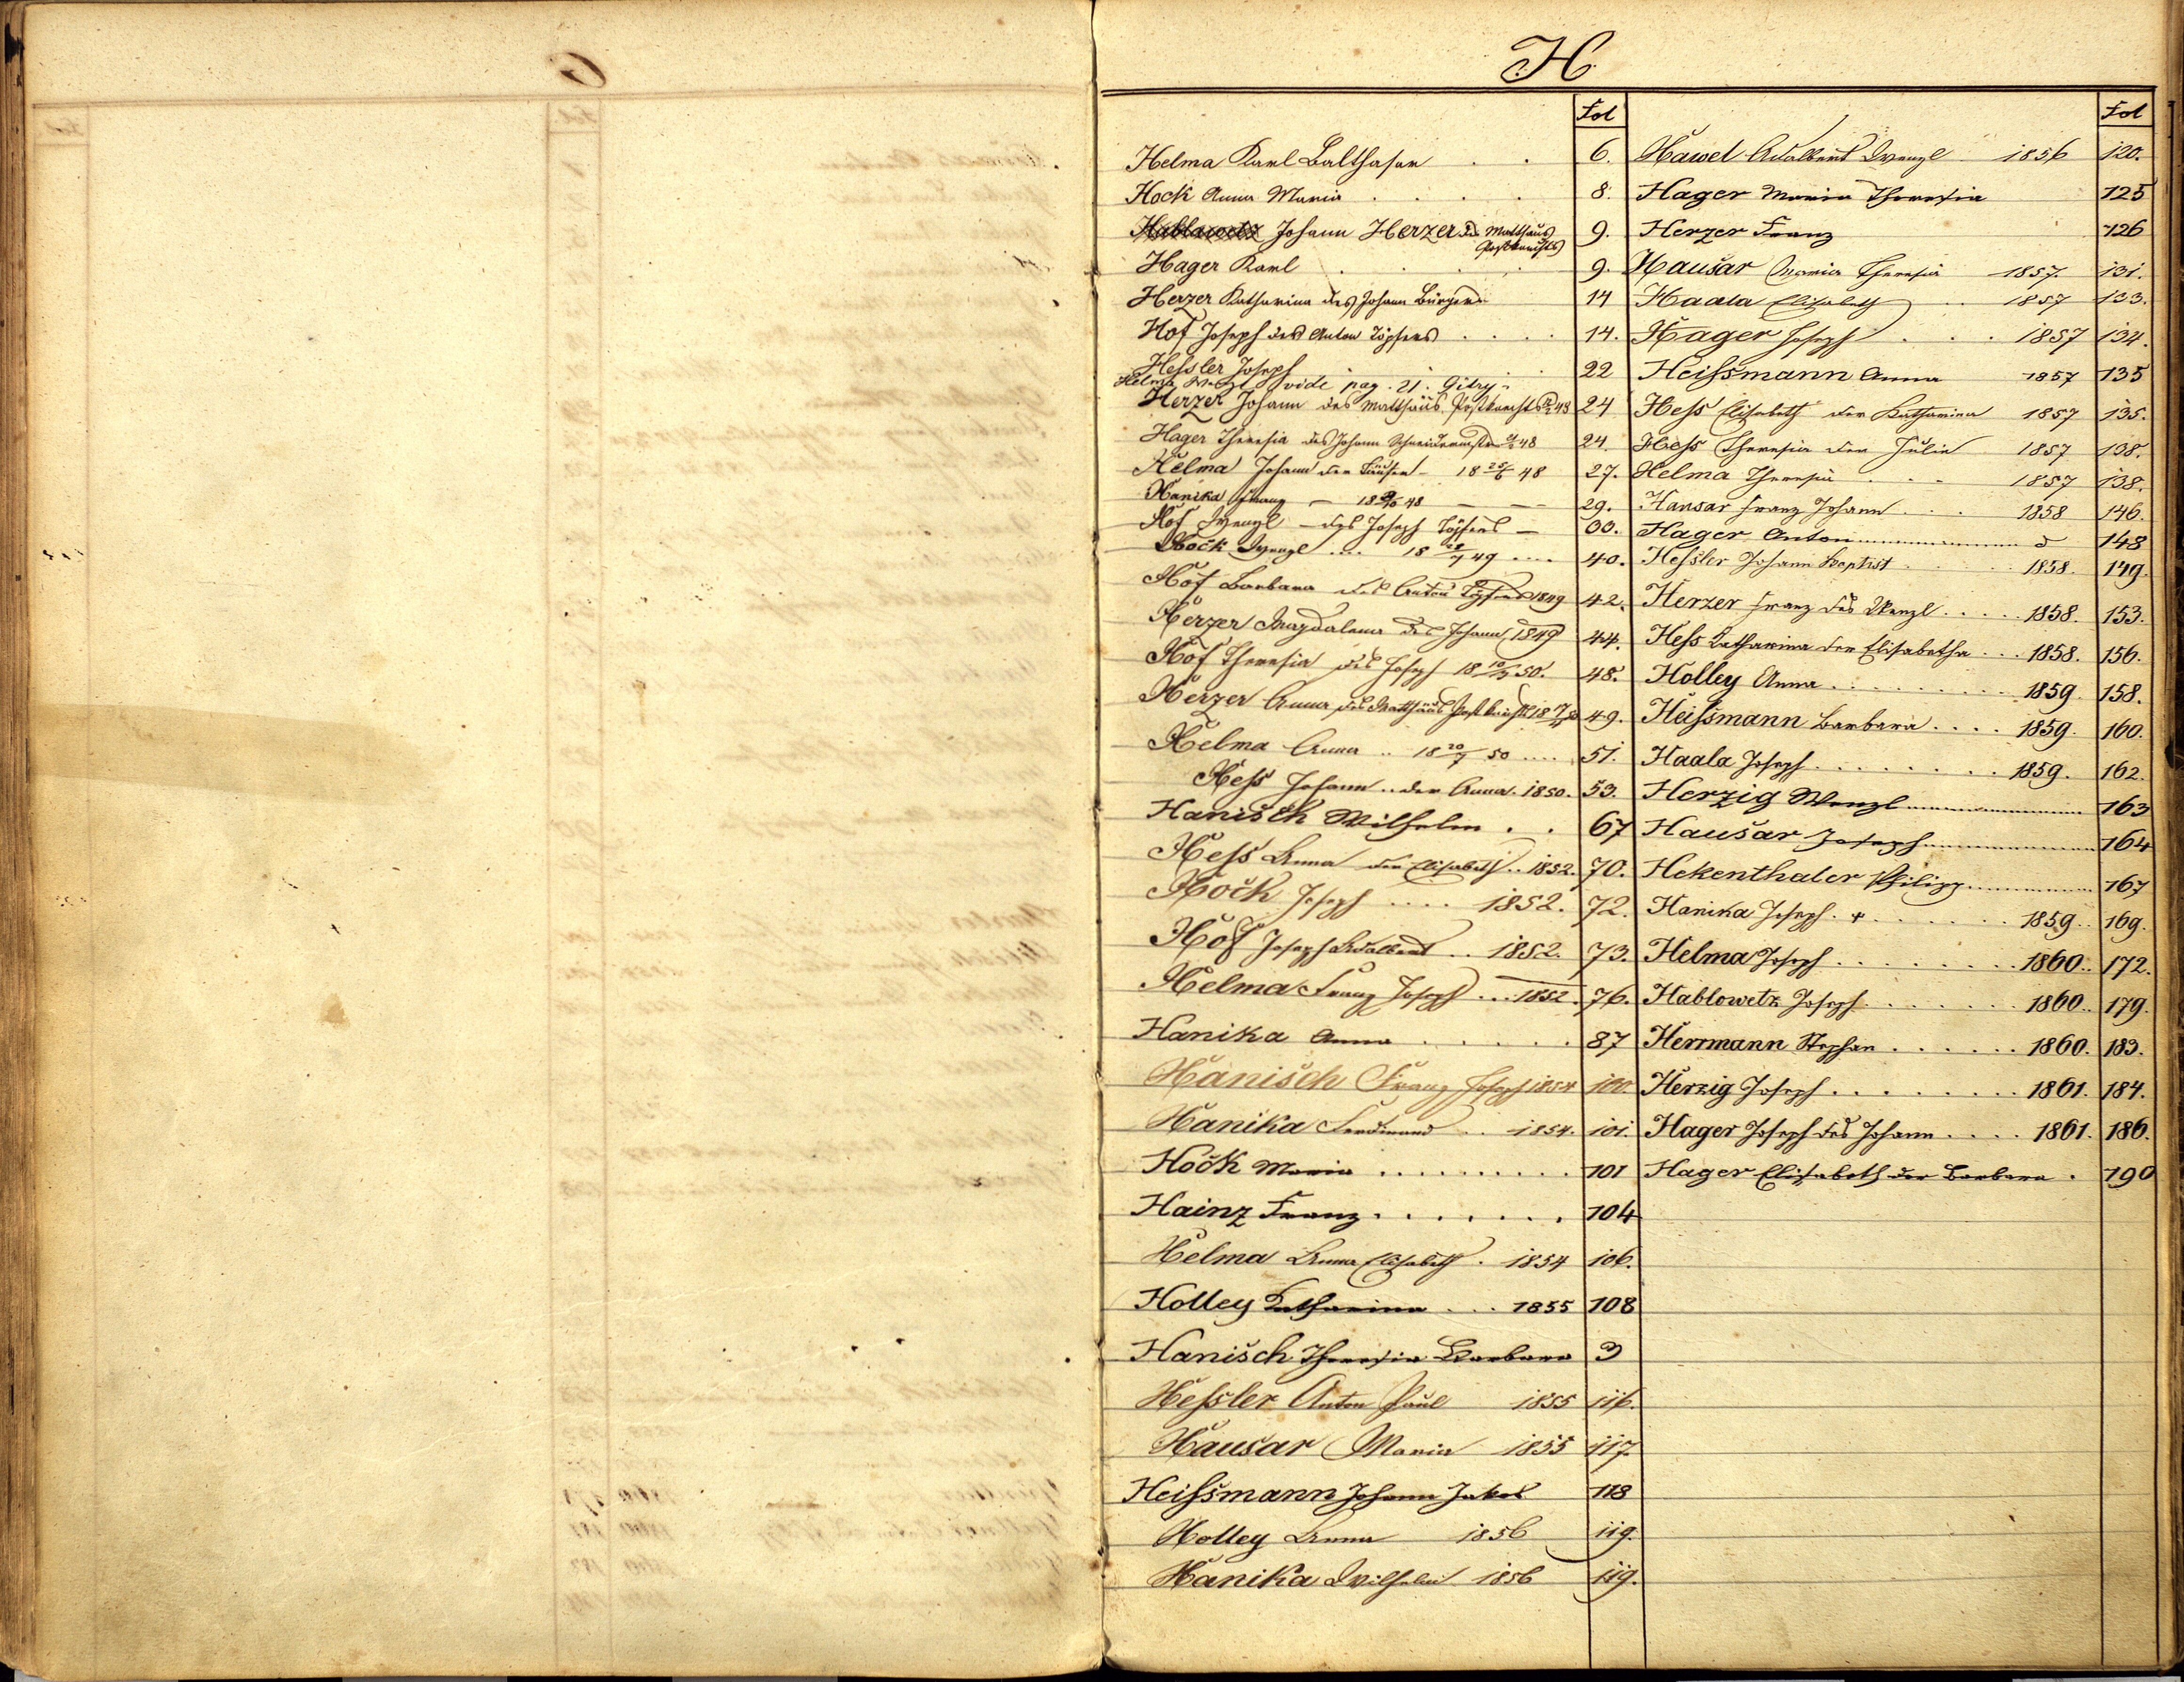 H
Fol
Helma Karl Balthasar . . 6.
Hock Anna Maria . . . . 8.
Hablawetz Johann Herzer des Matthäus 9.
Postknechts
Hager Karl . . . . 9.
Herzer Katharina des Johann Bürgers 14
Hof Joseph des Anton Töpfers . . . . 14.
Heßler Joseph . . . 22
Helma vide pag. 21.
Herzer Johann des Matthäus Postknechts 48 24
Hager Theresia des Johann 48 24.
Helma Johann der 18 48 27.
Hanika Franz — 18 48 — — 29.
Hof Wenzl — des Joseph Töpfers — 30.
Hock Wenzl .... 18 49 .... 40.
Hof Barbara des Anton Töpfers 1849 42.
Herzer Magdalena des Johann 1849 44.
Hof Theresia des Joseph 18 50. 48.
Herzer Anna des Matthäus Postknechts 18 50 49.
Helma Anna .. 18 20/7 50 .... 51.
Heß Johann .. der Anna. 1850. 53.
Hanisch Wilhelm . . 67
Heß Anna der Elisabeth .. 1852. 70.
Hock Joseph .... 1852. 72.
Hof Joseph Adalbert .. 1852. 73.
Helma Franz Joseph ... 1852. 76.
Hanika Anna . . . . . . 87
Hanisch Franz Joseph 1854 100.
Hanika Ferdinand .. 1854. 101.
Hock Maria . . . . . . . . . 101
Hainz Franz . . . . . . . 104
Helma Anna Elisabeth . 1854 106.
Holley Katharina . . . 1855 108
Hanisch Theresia Barbara 3
Heßler Anton Paul 1855 116.
Hausar Maria 1855 117.
Heißmann Johann Jakob 118
Holley Anna 1856 119.
Hanika Wilhelm 1856 119.
Fol
Hawel Adalbert Wenzl 1856 120.
Hager Maria Theresia 125
Herzer Franz 126
Hausar Maria Theresia 1857. 131.
Haala Elisabeth .. 1857 133.
Hager Joseph . . . 1857 134.
Heißmann Anna 1857 135
Heß Elisabeth der Katharina 1857 135.
Heß Theresia der Julie 1857 138.
Helma Theresia . . . 1857 138.
Hansar Franz Johann . . . 1858 146.
Hager Anton 148
Heßler Johann Baptist . . . 1858. 149.
Herzer Franz des Wenzl .... 1858. 153.
Heß Katharina der Elisabetha ... 1858. 156.
Holley Anna . . . . . . . . . 1859. 158.
Heißmann Barbara .... 1859. 160.
Haala Joseph . . . . . . . . 1859. 162.
Herzig Wenzl 163
Hausar Joseph 164
Hekenthaler Philipp 167
Hanika Joseph . . . . . . . 1859. 169.
Helma Joseph . . . . . . . . 1860. 172.
Hablowetz Joseph . . . . . . . 1860. 179.
Herrmann Stephan . . . . . . 1860. 183.
Herzig Joseph . . . . . . . . 1861. 184.
Hager Joseph des Johann .... 1861. 186.
Hager Elisabeth der Barbara . 190